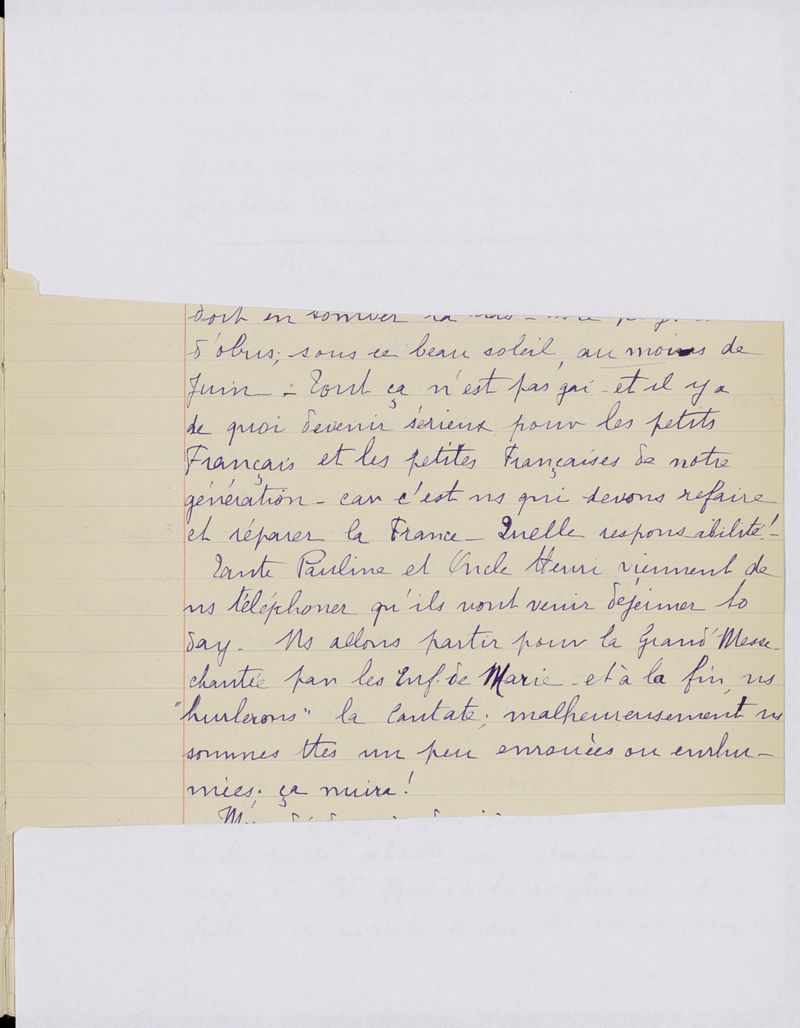 doit en tomber
d'obus; sous ce beau soleil, au mois de
Juin – Tout ça n'est pas gai – et il y a
de quoi devenir sérieux pour les petits
Français et les petites Françaises de notre
génération – car c'est ns qui devons refaire
et réparer la France – Quelle responsabilité! –
Tante Pauline et Oncle Henri viennent de
ns téléphoner qu'ils vont venir déjeuner to
day – Ns allons partir pour la Grand'Messe
chantée par les Enf. de Marie – et à la fin, ns
"hurlerons" la Cantate; malheureusement ns
sommes ttes un peu enrouées ou enrhu–
mées; ça nuira!